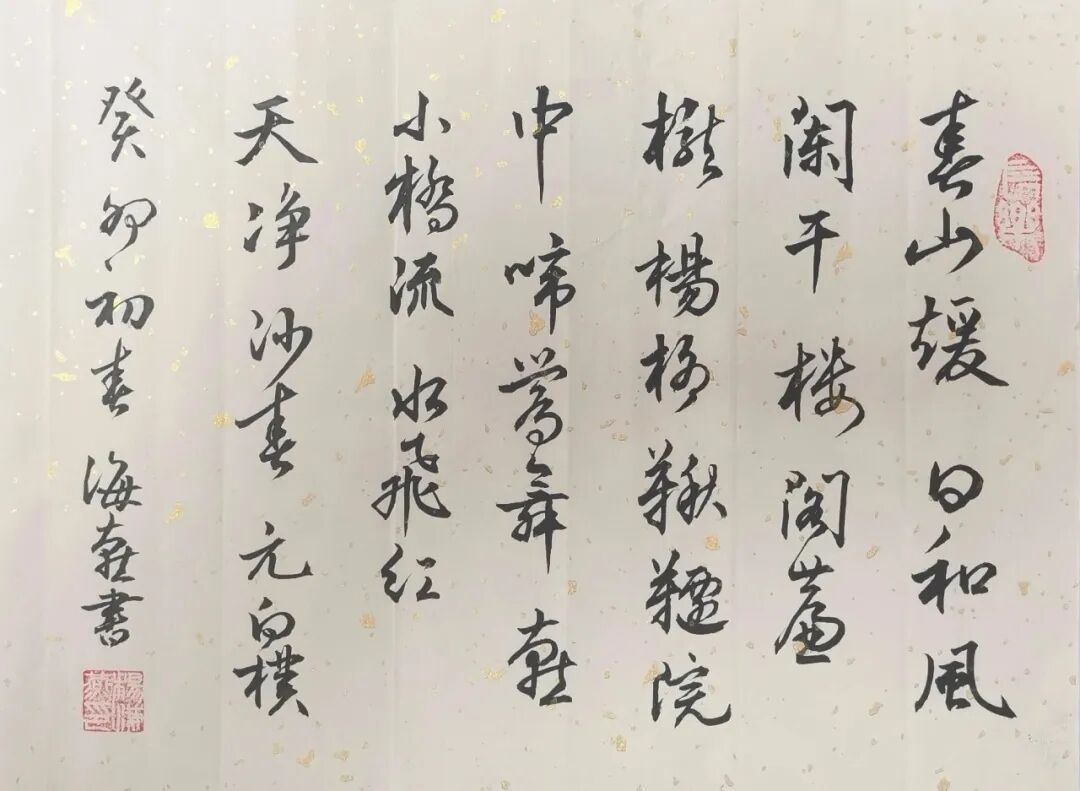 春山煖日和風
闌干楼閣簾
櫳楊柳鞦韆院
中啼鶯舞燕
小橋流水飛紅
天净沙春 元白樸
癸卯初春 海燕書
楊海燕印